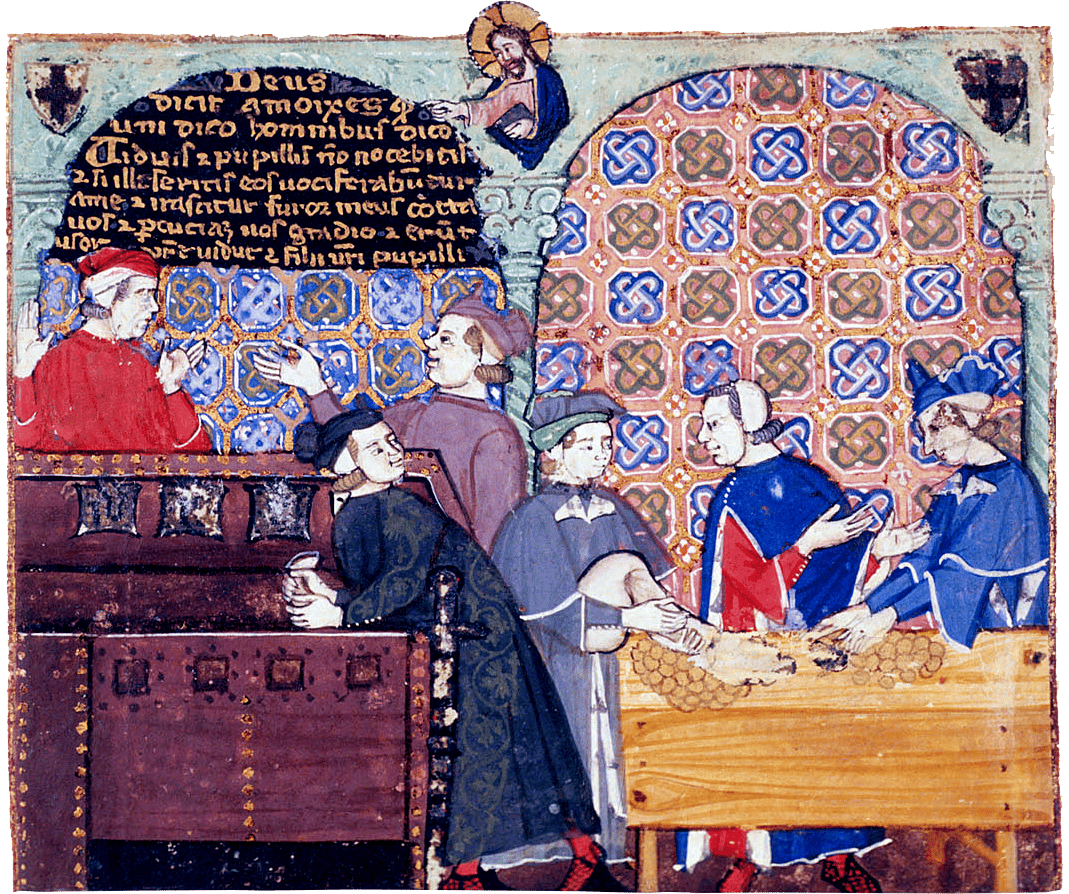 Deus
dicit amoixes q
uni dico hominibus dico
Uiduis ⁊ pupillis nō nocebitis
⁊ si illeseritis eos uociferabūtur
ame ⁊ irascitur furor meus cōtra
uos ⁊ ꝑcuciaz uos gladio ⁊ erūt
uxor uidue ⁊ filii uri pupilli